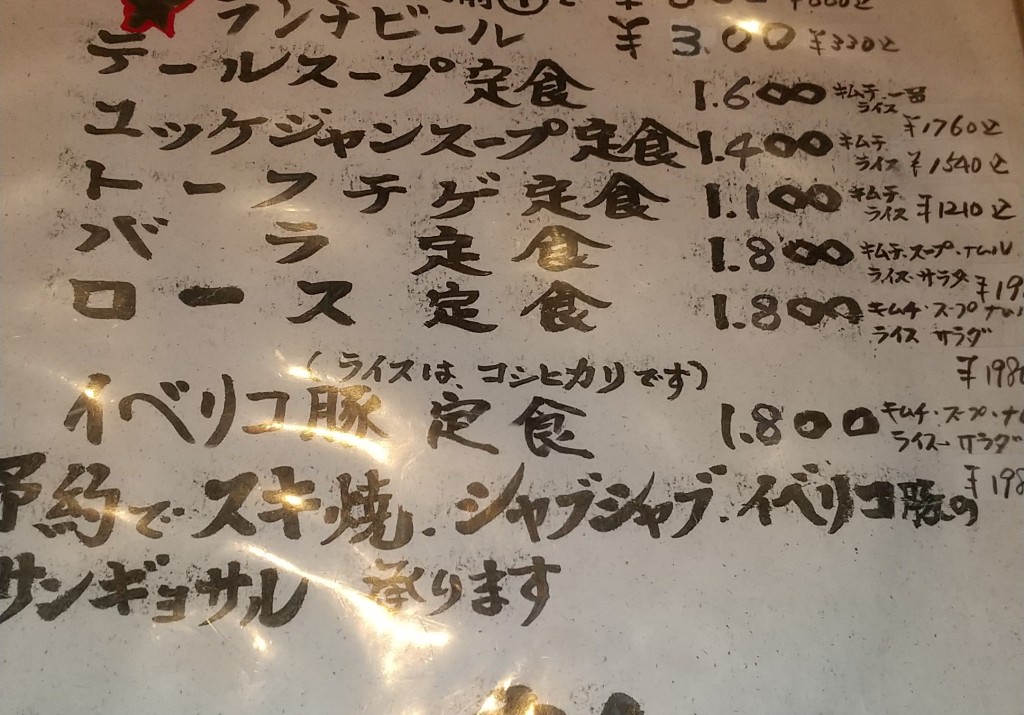 ランチビール ¥300 ¥330込
テールスープ定食 1.600 キムチ 一品 ライス ¥1760込
ユッケジャンスープ定食 1.400 キムチ ライス ¥1540込
トーフチゲ定食 1.100 キムチ ライス ¥1210込
バラ定食 1.800 キムチ・スープ・ナムル ライス・サラダ ¥19
ロース定食 1.800 キムチ・スープ ナムル ライス サラダ
(ライスは、コシヒカリです) ¥198
イベリコ豚定食 1.800 キムチ・スープ・ナ ライス・サラダ
¥198
予約でスキ焼.シャブシャブ.イベリコ豚の
サンギョサル 承ります